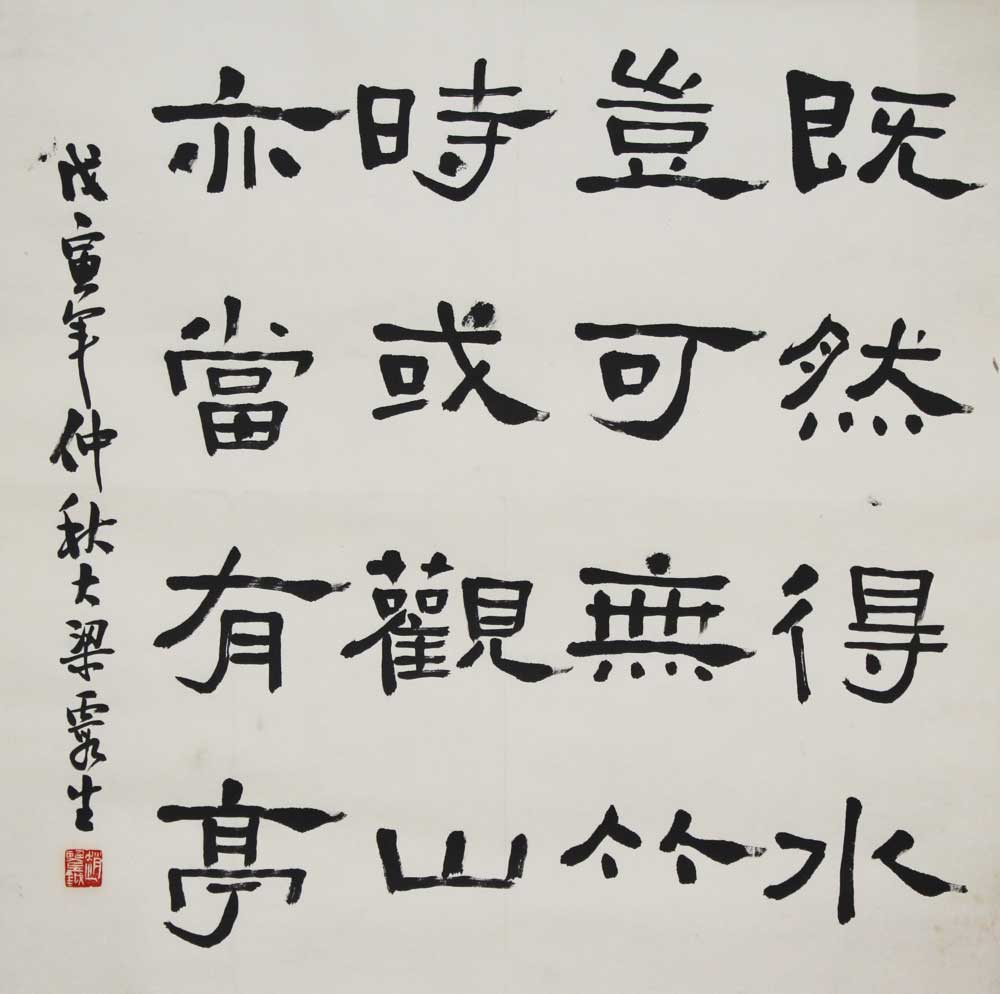 既然得水
豈可無竹
時或觀山
亦當有亭
戊寅年仲秋大梁霞生